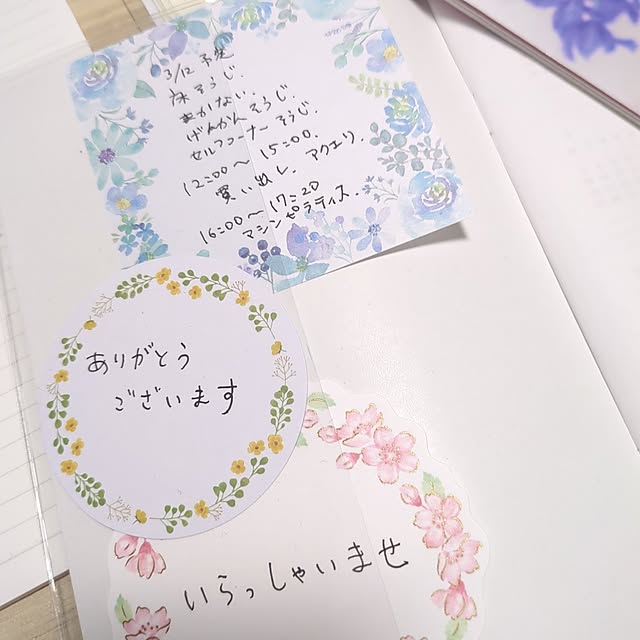 3/12 予定
床そうじ.
まかない.
げんかんそうじ.
セルフコーナーそうじ.
12:00～15:00.
買い出し. アクエリ.
16:00～17:20
マシンピラティス.
ありがとう
ございます
いらっしゃいませ